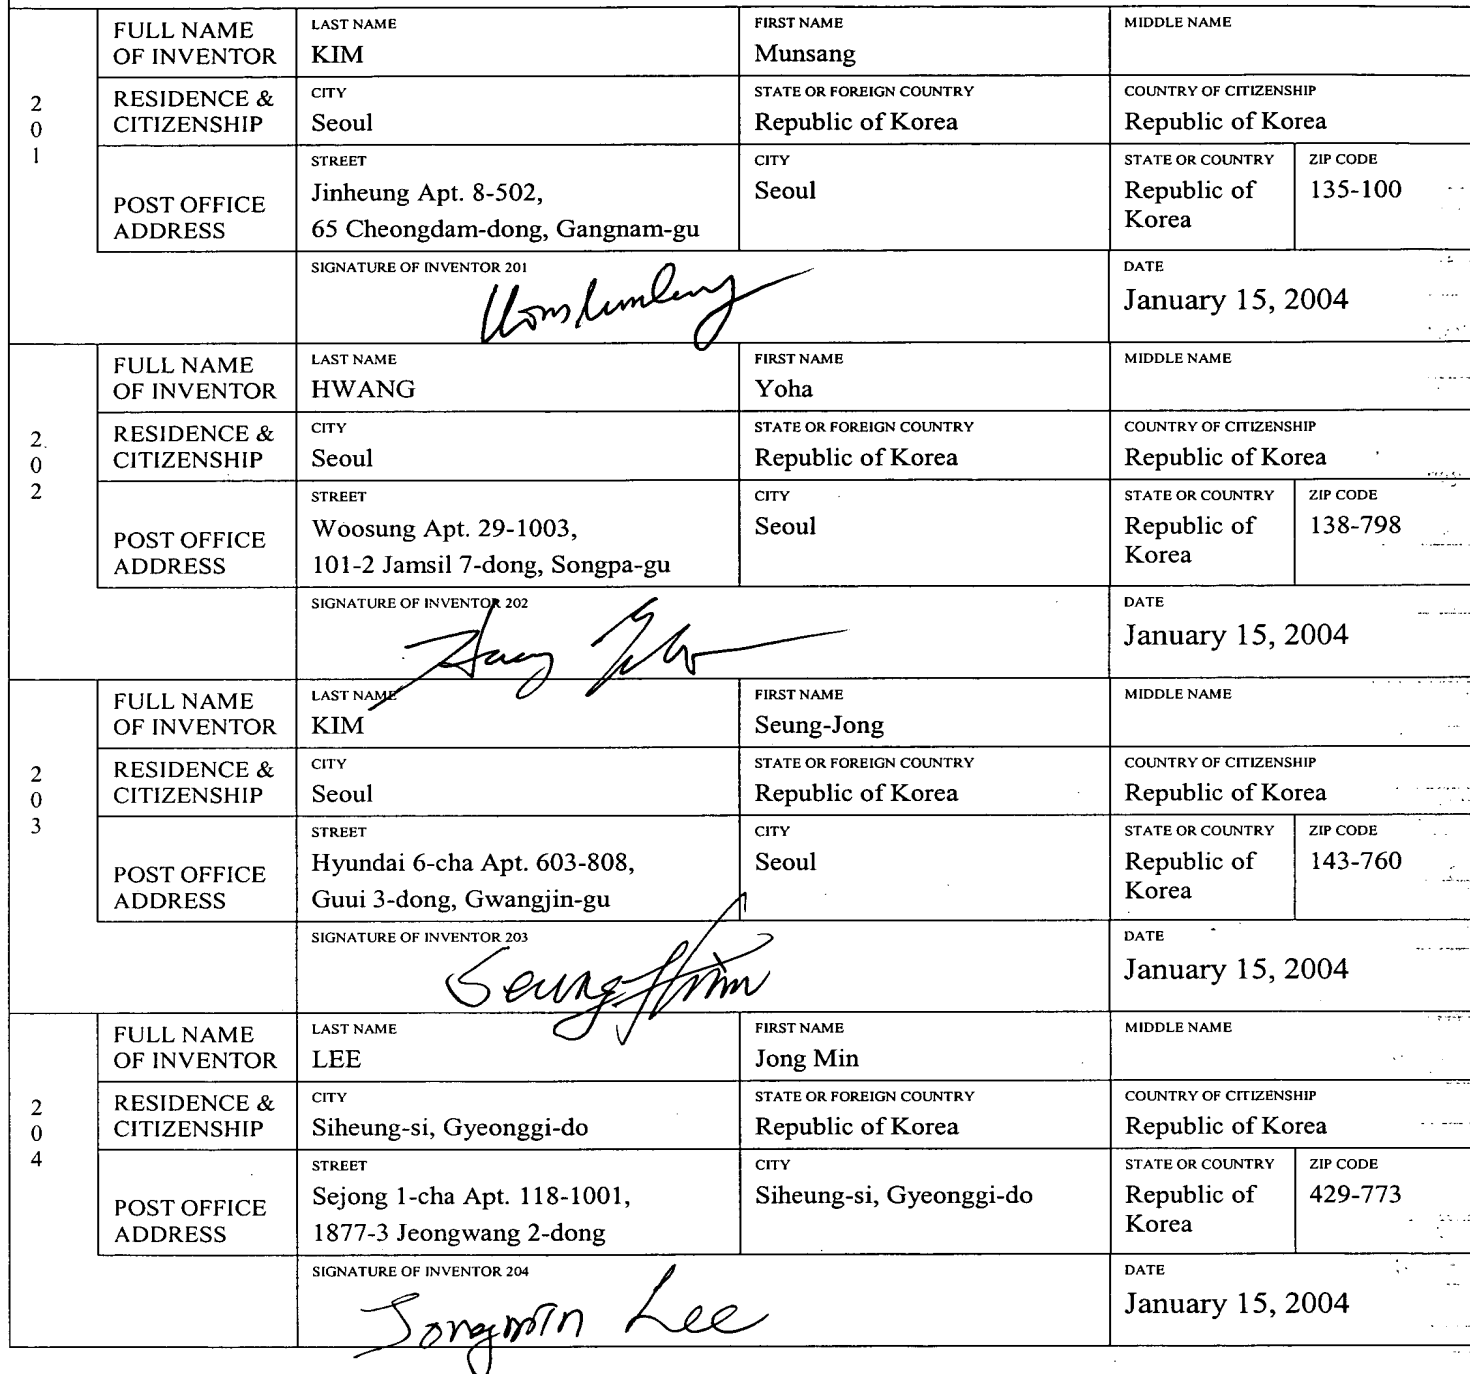 FULL NAME OF INVENTOR
LAST NAME
KIM
FIRST NAME
Munsang
MIDDLE NAME
2
0
1
RESIDENCE &
CITIZENSHIP
CITY
Seoul
STATE OR FOREIGN COUNTRY
Republic of Korea
COUNTRY OF CITIZENSHIP
Republic of Korea
POST OFFICE
ADDRESS
STREET
Jinheung Apt. 8-502,
65 Cheongdam-dong, Gangnam-gu
CITY
Seoul
STATE OR COUNTRY
Republic of
Korea
ZIP CODE
135-100
SIGNATURE OF INVENTOR 201
DATE
January 15, 2004
FULL NAME
OF INVENTOR
LAST NAME
HWANG
FIRST NAME
Yoha
MIDDLE NAME
2
0
2
RESIDENCE &
CITIZENSHIP
CITY
Seoul
STATE OR FOREIGN COUNTRY
Republic of Korea
COUNTRY OF CITIZENSHIP
Republic of Korea
POST OFFICE
ADDRESS
STREET
Woosung Apt. 29-1003,
101-2 Jamsil 7-dong, Songpa-gu
CITY
Seoul
STATE OR COUNTRY
Republic of
Korea
ZIP CODE
138-798
SIGNATURE OF INVENTOR 202
DATE
January 15, 2004
FULL NAME
OF INVENTOR
LAST NAME
KIM
FIRST NAME
Seung-Jong
MIDDLE NAME
2
0
3
RESIDENCE &
CITIZENSHIP
CITY
Seoul
STATE OR FOREIGN COUNTRY
Republic of Korea
COUNTRY OF CITIZENSHIP
Republic of Korea
POST OFFICE
ADDRESS
STREET
Hyundai 6-cha Apt. 603-808,
Guui 3-dong, Gwangjin-gu
CITY
Seoul
STATE OR COUNTRY
Republic of
Korea
ZIP CODE
143-760
SIGNATURE OF INVENTOR 203
DATE
January 15, 2004
FULL NAME
OF INVENTOR
LAST NAME
LEE
FIRST NAME
Jong Min
MIDDLE NAME
2
0
4
RESIDENCE &
CITIZENSHIP
CITY
Siheung-si, Gyeonggi-do
STATE OR FOREIGN COUNTRY
Republic of Korea
COUNTRY OF CITIZENSHIP
Republic of Korea
POST OFFICE
ADDRESS
STREET
Sejong 1-cha Apt. 118-1001,
1877-3 Jeongwang 2-dong
CITY
Siheung-si, Gyeonggi-do
STATE OR COUNTRY
Republic of
Korea
ZIP CODE
429-773
SIGNATURE OF INVENTOR 204
Jongmin Lee
DATE
January 15, 2004